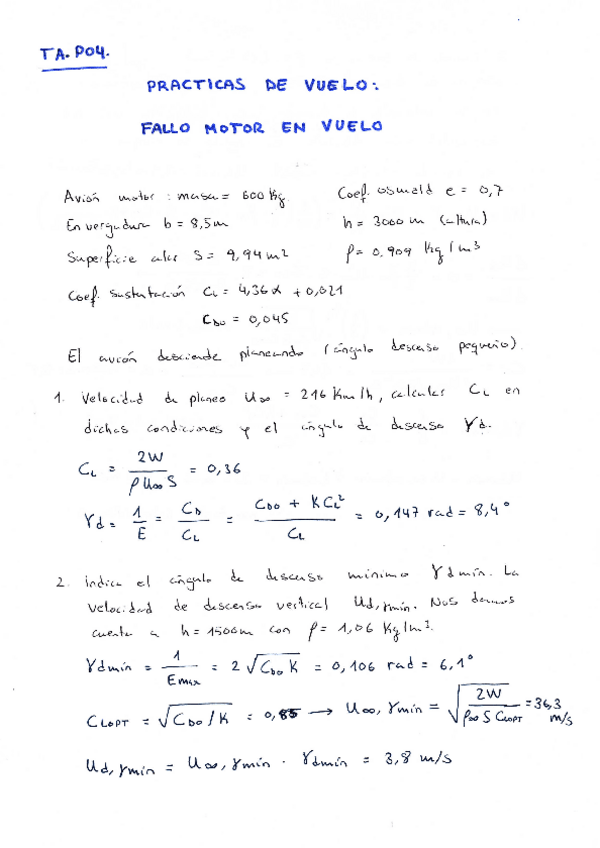 TA. P04.
PRACTICAS DE VUELO:
FALLO MOTOR EN VUELO
Avión motor : masa = 600 Kg. Coef. oswald e = 0,7
Envergadura b = 8,5 m h = 3000 m (altura)
Superficie alar S = 9,94 m² ρ = 0,909 Kg/m³
Coef. sustentación CL = 4,36α + 0,021
CD0 = 0,045
El avión desciende planeando (ángulo descenso pequeño).
1. Velocidad de planeo U∞ = 216 Km/h, calcular CL en
dichas condiciones y el ángulo de descenso γd.
CL = 2W / ρ U∞ S = 0,36
γd = 1/E = CD/CL = (CD0 + KCL²)/CL = 0,147 rad = 8,4°
2. indica el ángulo de descenso mínimo γdmín. La
velocidad de descenso vertical Ud,γmín. Nos damos
cuenta a h = 1500m con ρ = 1,06 Kg/m³.
γdmín = 1/Emax = 2√(CD0 K) = 0,106 rad = 6,1°
CLOPT = √(CD0/K) = 0,85 → U∞,γmín = √(2W / ρ∞ S CLOPT) = 36,3 m/s
Ud,γmín = U∞,γmín · γdmín = 3,8 m/s